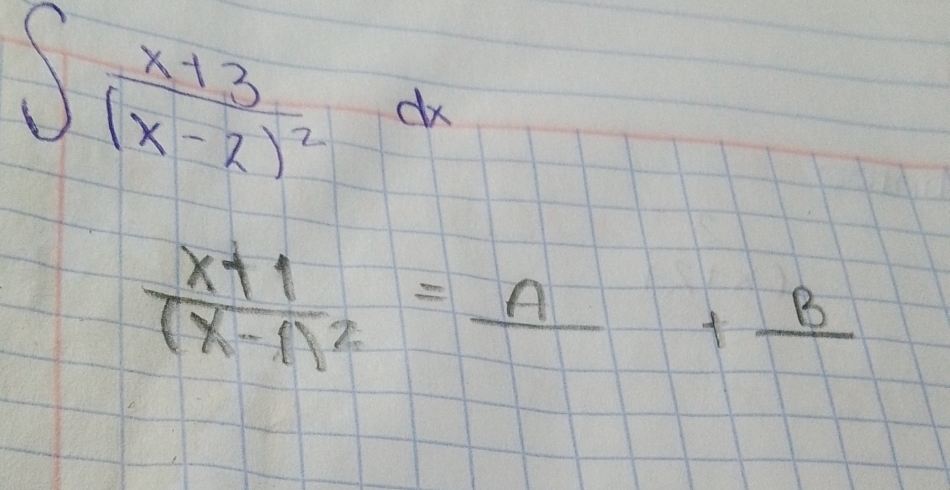 ∫ x+3 / (x-2)² dx
x+1 / (x-1)² = A/ + B/